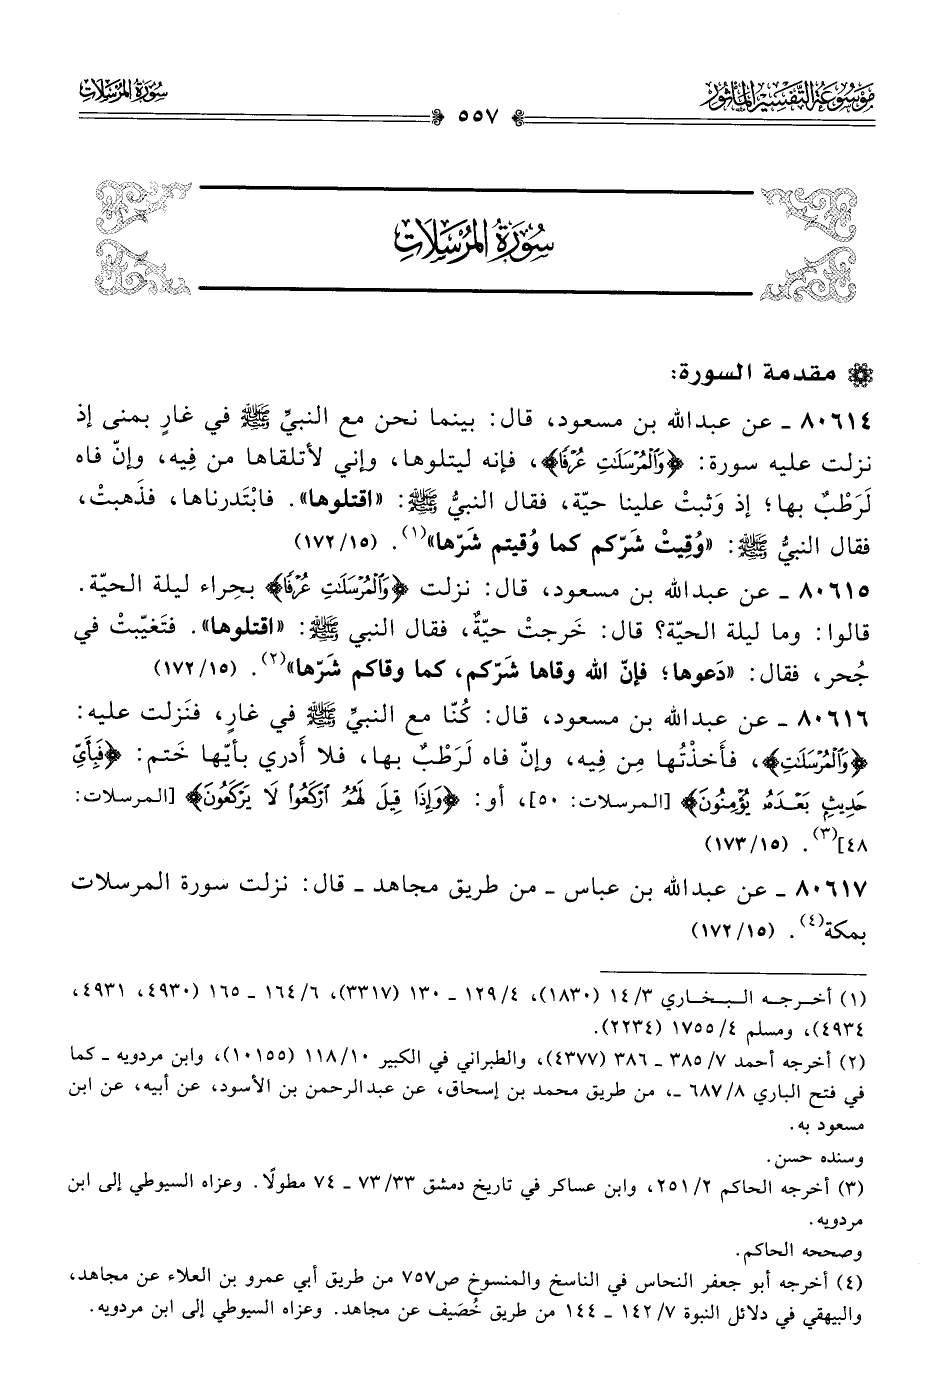 موسوعة التفسير المأثور
٥٥٧
سورة المرسلات
سُورَةُ المُرْسَلَاتِ
مقدمة السورة:
٨٠٦١٤ ـ عن عبدالله بن مسعود، قال: بينما نحن مع النبيِّ ﷺ في غارٍ بمنى إذ
نزلت عليه سورة: ﴿وَٱلْمُرْسَلَٰتِ عُرْفًا﴾، فإنه ليتلوها، وإني لأتلقاها من فِيه، وإنّ فاه
لَرَطْبٌ بها؛ إذ وَثبتْ علينا حيّة، فقال النبيُّ ﷺ: «اقتلوها». فابْتَدرناها، فذَهبتْ،
فقال النبيُّ ﷺ: «وُقِيتْ شَرّكم كما وُقيتم شَرّها»(١). (١٥/ ١٧٢)
٨٠٦١٥ ـ عن عبدالله بن مسعود، قال: نزلت ﴿وَٱلْمُرْسَلَٰتِ عُرْفًا﴾ بحِراء ليلة الحيّة.
قالوا: وما ليلة الحيّة؟ قال: خَرجتْ حيّةٌ، فقال النبي ﷺ: «اقتلوها». فتَغيّبتْ في
جُحر، فقال: «دَعوها؛ فإنّ الله وقاها شَرّكم، كما وقاكم شَرّها»(٢). (١٥/ ١٧٢)
٨٠٦١٦ ـ عن عبدالله بن مسعود، قال: كُنّا مع النبيِّ ﷺ في غارٍ، فنَزلت عليه:
﴿وَٱلْمُرْسَلَٰتِ﴾، فأخذْتُها مِن فِيه، وإنّ فاه لَرَطْبٌ بها، فلا أدري بأيّها خَتم: ﴿فَبِأَىِّ
حَدِيثٍۭ بَعْدَهُۥ يُؤْمِنُونَ﴾ [المرسلات: ٥٠]، أو: ﴿وَإِذَا قِيلَ لَهُمُ ٱرْكَعُوا۟ لَا يَرْكَعُونَ﴾ [المرسلات:
٤٨](٣). (١٥/ ١٧٣)
٨٠٦١٧ ـ عن عبدالله بن عباس ـ من طريق مجاهد ـ قال: نزلت سورة المرسلات
بمكة(٤). (١٥/ ١٧٢)
(١) أخرجه البخاري ٣/ ١٤ (١٨٣٠)، ٤/ ١٢٩ ـ ١٣٠ (٣٣١٧)، ٦/ ١٦٤ ـ ١٦٥ (٤٩٣٠، ٤٩٣١،
٤٩٣٤)، ومسلم ٤/ ١٧٥٥ (٢٢٣٤).
(٢) أخرجه أحمد ٧/ ٣٨٥ ـ ٣٨٦ (٤٣٧٧)، والطبراني في الكبير ١٠/ ١١٨ (١٠١٥٥)، وابن مردويه ـ كما
في فتح الباري ٨/ ٦٨٧ ـ، من طريق محمد بن إسحاق، عن عبدالرحمن بن الأسود، عن أبيه، عن ابن
مسعود به.
وسنده حسن.
(٣) أخرجه الحاكم ٢/ ٢٥١، وابن عساكر في تاريخ دمشق ٣٣/ ٧٣ ـ ٧٤ مطولًا. وعزاه السيوطي إلى ابن
مردويه.
وصححه الحاكم.
(٤) أخرجه أبو جعفر النحاس في الناسخ والمنسوخ ص٧٥٧ من طريق أبي عمرو بن العلاء عن مجاهد،
والبيهقي في دلائل النبوة ٧/ ١٤٢ ـ ١٤٤ من طريق خُصَيف عن مجاهد. وعزاه السيوطي إلى ابن مردويه.